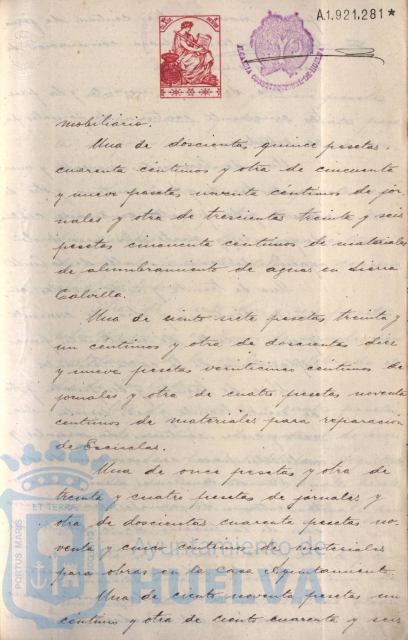 A.1.921.281*
ALCALDIA CONSTITUCIONAL DE HUELVA
mobiliario.
Una de doscientas quince pesetas
cuarenta céntimos y otra de cincuenta
y nueve pesetas noventa céntimos de jor-
nales y otra de trescientas treinta y seis
pesetas cincuenta céntimos de materiales
de alumbramiento de aguas en Sierra
Calvilla.
Una de ciento siete pesetas treinta y
un céntimos y otra de doscientas diez
y nueve pesetas veinticinco céntimos de
jornales y otra de cuatro pesetas noventa
céntimos de materiales para reparación
de Escuelas.
Una de once pesetas y otra de
treinta y cuatro pesetas de jornales y
otra de doscientas cuarenta pesetas no-
venta y cinco céntimos de materiales
para obras en la Casa Ayuntamiento.
Una de ciento noventa pesetas un
céntimo y otra de ciento cuarenta y seis
PORTUS MARIS
ET TERRÆ
CUSTODIA
Ayuntamiento de
HUELVA